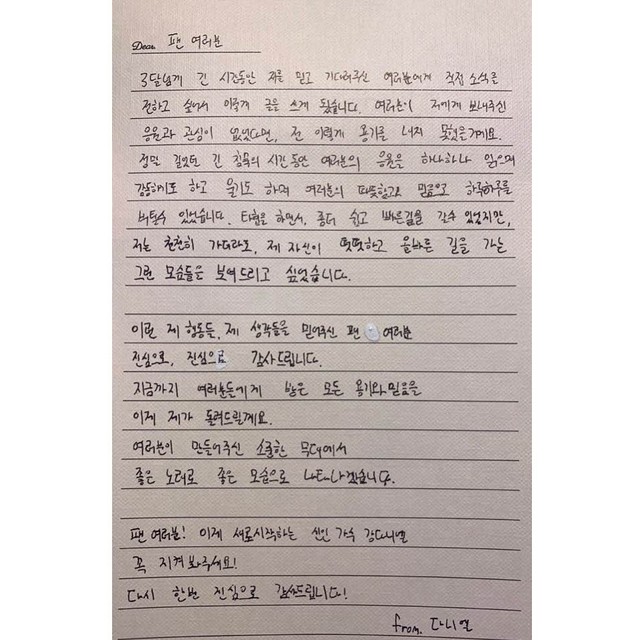 Dear 팬 여러분
3달넘게 긴 시간동안 저를 믿고 기다려주신 여러분에게 직접 소식을
전하고 싶어서 이렇게 글을 쓰게 됐습니다. 여러분이 저에게 보내주신
응원과 관심이 없었다면, 전 이렇게 용기를 내지 못했을거에요.
정말 길었던 긴 침묵의 시간동안 여러분의 응원을 하나하나 읽으며
감동하기도 하고 울기도 하며 여러분의 따뜻함과 믿음으로 하루하루를
버틸수 있었습니다. 타협을 하면서, 좀더 쉽고 빠른길을 갈수 있었지만,
저는 천천히 가더라도, 제 자신이 떳떳하고 올바른 길을 가는
그런 모습들을 보여드리고 싶었습니다.
이런 제 행동들, 제 생각들을 믿어주신 팬 여러분
진심으로, 진심으로 감사드립니다.
지금까지 여러분들에게 받은 모든 용기와 믿음을
이제 제가 돌려드릴께요.
여러분이 만들어주신 소중한 무대에서
좋은 노래로 좋은 모습으로 나타나겠습니다.
팬 여러분! 이제 새로시작하는 신인 가수 강다니엘
꼭 지켜봐주세요!
다시 한번 진심으로 감사드립니다!
from. 다니엘